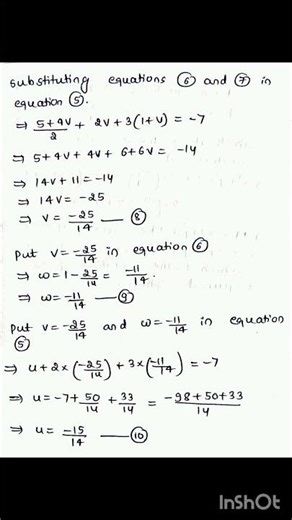 substituting equations ⑥ and ⑦ in
equation ⑤.
⇒ (5+4v)/2 + 2v + 3(1+v) = -7
⇒ 5+4v+4v+6+6v = -14
⇒ 14v+11 = -14
⇒ 14v = -25
⇒ v = -25/14 — ⑧
put v = -25/14 in equation ⑥
⇒ w = 1 - 25/14 = -11/14.
⇒ w = -11/14 — ⑨
put v = -25/14 and w = -11/14 in equation
⑤
⇒ u + 2×(-25/14) + 3×(-11/14) = -7
⇒ u = -7 + 50/14 + 33/14 = (-98+50+33)/14
⇒ u = -15/14 — ⑩
InShOt